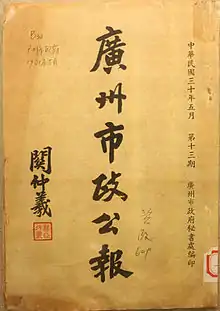 中華民國三十年五月 第十三期 廣州市政府秘書處編印
廣州市政公報
關仲羲